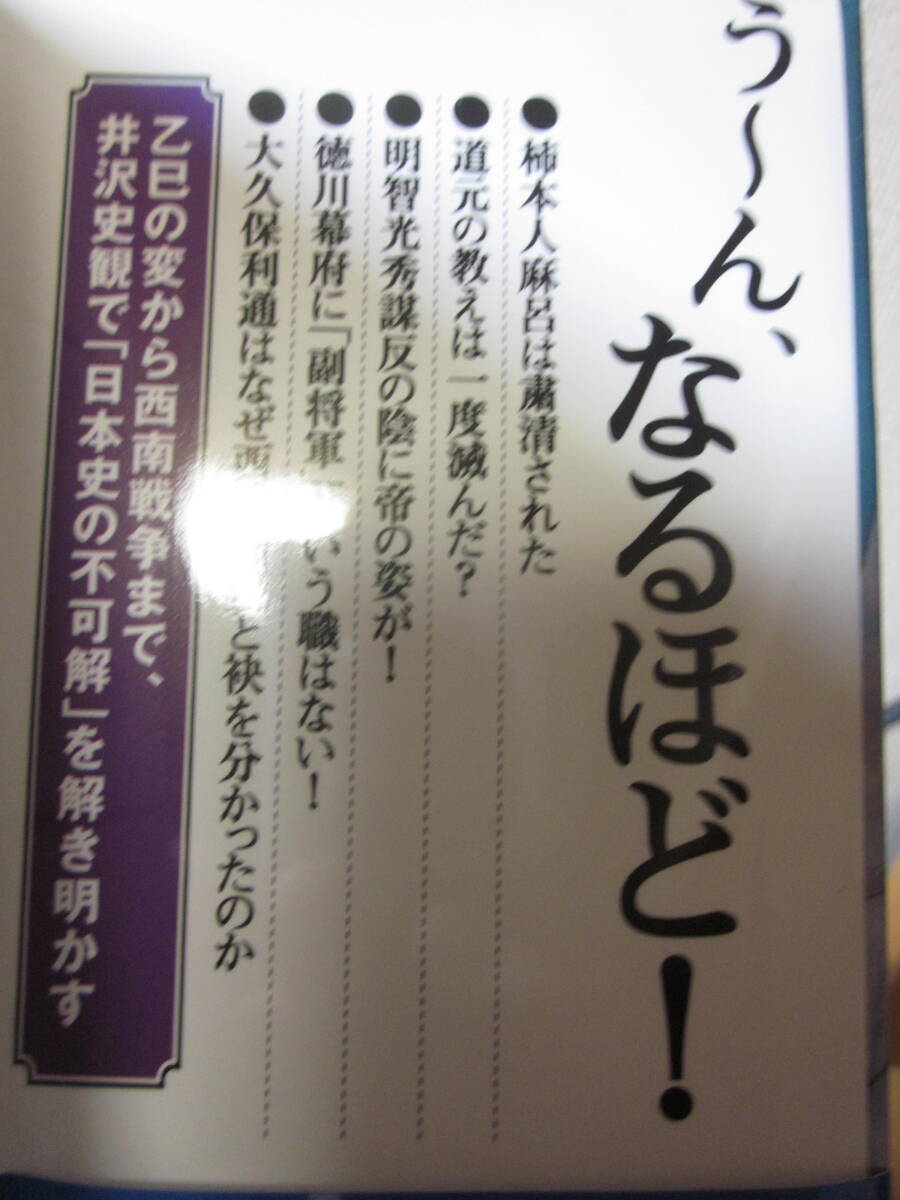 う～ん、
なるほど！
●柿本人麻呂は粛清された
●道元の教えは一度滅んだ？
●明智光秀謀反の陰に帝の姿が！
●徳川幕府に「副将軍 いう職はない！
●大久保利通はなぜ西 と袂を分かったのか
乙巳の変から西南戦争まで、
井沢史観で「日本史の不可解」を解き明かす